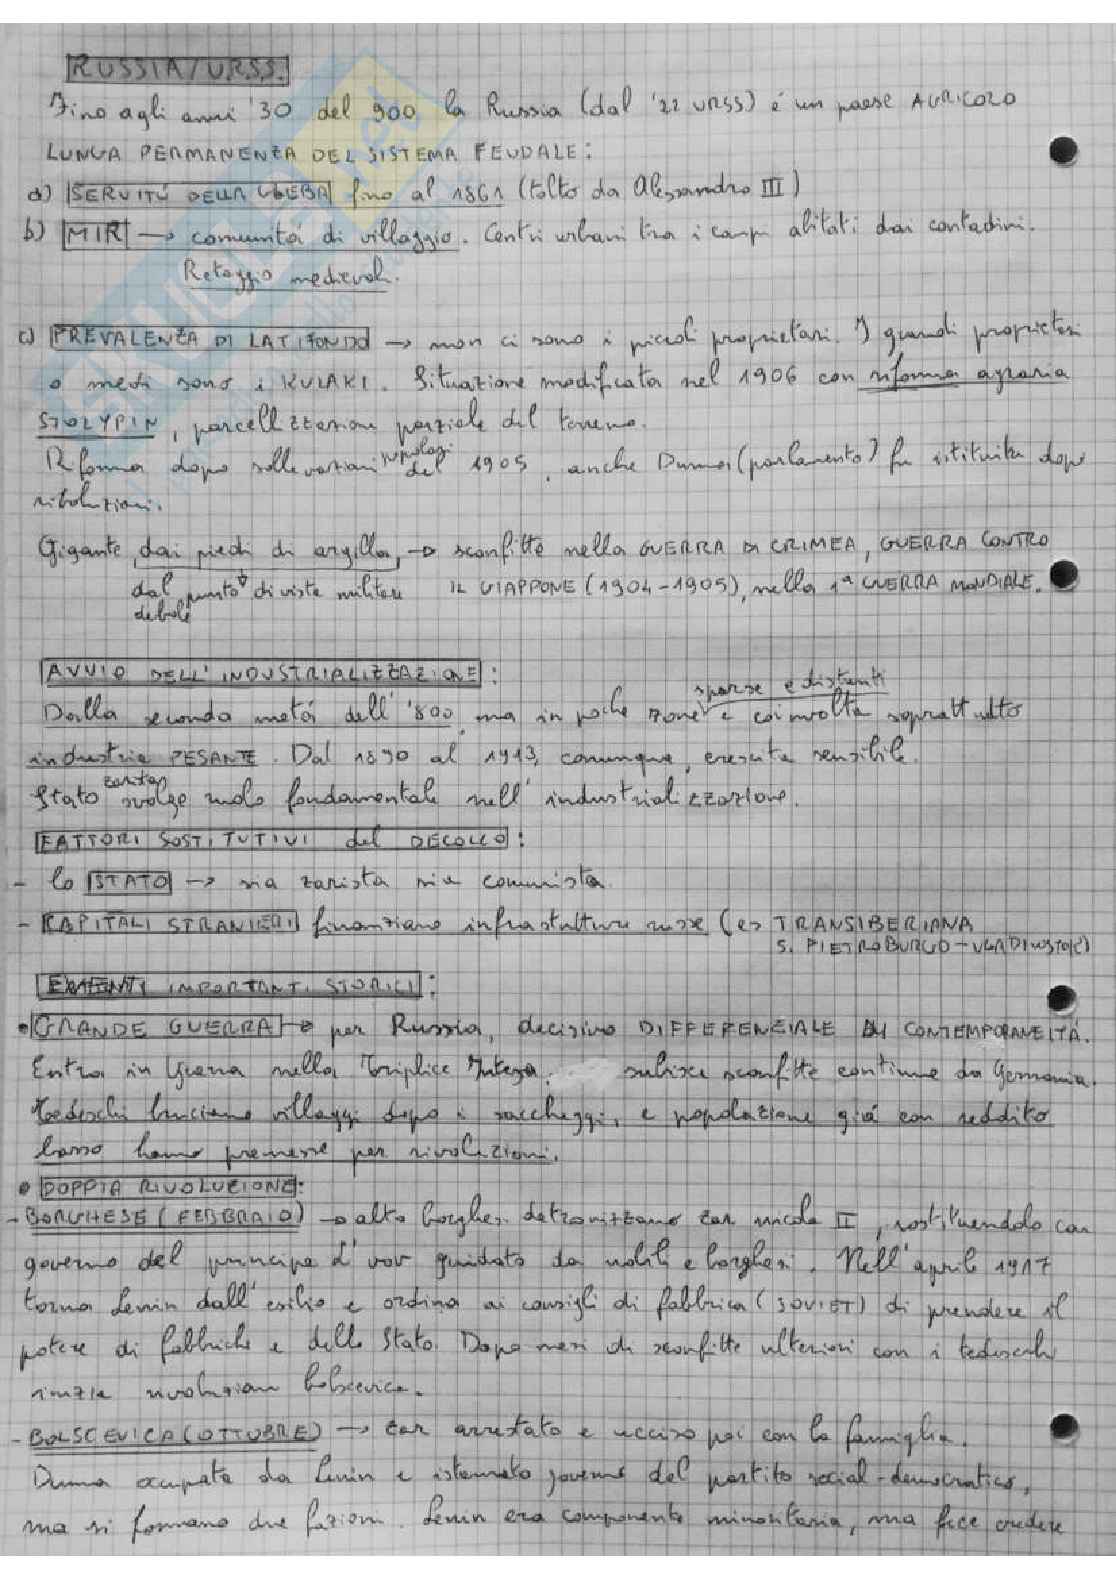 RUSSIA/U.R.S.S.
Fino agli anni '30 del 900 la Russia (dal '22 URSS) é un paese AGRICOLO
LUNGA PERMANENZA DEL SISTEMA FEUDALE:
a) SERVITÚ DELLA GLEBA fino al 1861 (tolto da Alessandro III)
b) MIR → comunitá di villaggio. Centri urbani tra i campi abitati dai contadini.
Retaggio medievale.
c) PREVALENZA DI LATIFONDO → non ci sono i piccoli proprietari. I grandi proprietari
o medi sono i KULAKI. Situazione modificata nel 1906 con riforma agraria
STOLYPIN, parcellizzazione parziale del terreno.
Riforma dopo sollevazioni popolari del 1905, anche Duma (parlamento) fu istituita dopo
rivoluzioni.
Gigante dai piedi di argilla, → sconfitte nella GUERRA DI CRIMEA, GUERRA CONTRO
dal punto di vista militare IL GIAPPONE (1904-1905), nella 1ª GUERRA MONDIALE.
debole
AVVIO DELL'INDUSTRIALIZZAZIONE:
sparse e distanti
Dalla seconda metá dell''800, ma in poche zone e coinvolta soprattutto
industria PESANTE. Dal 1890 al 1913, comunque, crescita sensibile.
Stato zarista svolge ruolo fondamentale nell'industrializzazione.
FATTORI SOSTITUTIVI del DECOLLO:
- lo STATO → sia zarista sia comunista.
- CAPITALI STRANIERI finanziano infrastrutture russe (es TRANSIBERIANA
S. PIETROBURGO-VLADIVOSTOK)
IMPORTANTI STORICI:
• GRANDE GUERRA → per Russia, decisivo DIFFERENZIALE DI CONTEMPORANEITÁ.
Entra in Guerra nella Triplice Intesa. subisce sconfitte continue da Germania.
Tedeschi bruciano villaggi dopo i saccheggi, e popolazione giá con reddito
basso hanno premesse per rivoluzioni.
• DOPPIA RIVOLUZIONE:
- BORGHESE (FEBBRAIO) → alto borghesi detronizzano zar nicola II, sostituendolo con
governo del principe L'vov guidato da nobili e borghesi. Nell'aprile 1917
torna Lenin dall'esilio e ordina ai consigli di fabbrica (SOVIET) di prendere il
potere di fabbriche e dello Stato. Dopo mesi di sconfitte ulteriori con i tedeschi
inizia rivoluzione bolscevica.
- BOLSCEVICA (OTTOBRE) → zar arrestato e ucciso poi con la famiglia.
Duma occupata da Lenin e istaurato governo del partito social-democratico,
ma si formano due fazioni. Lenin era componente minoritaria, ma fece credere